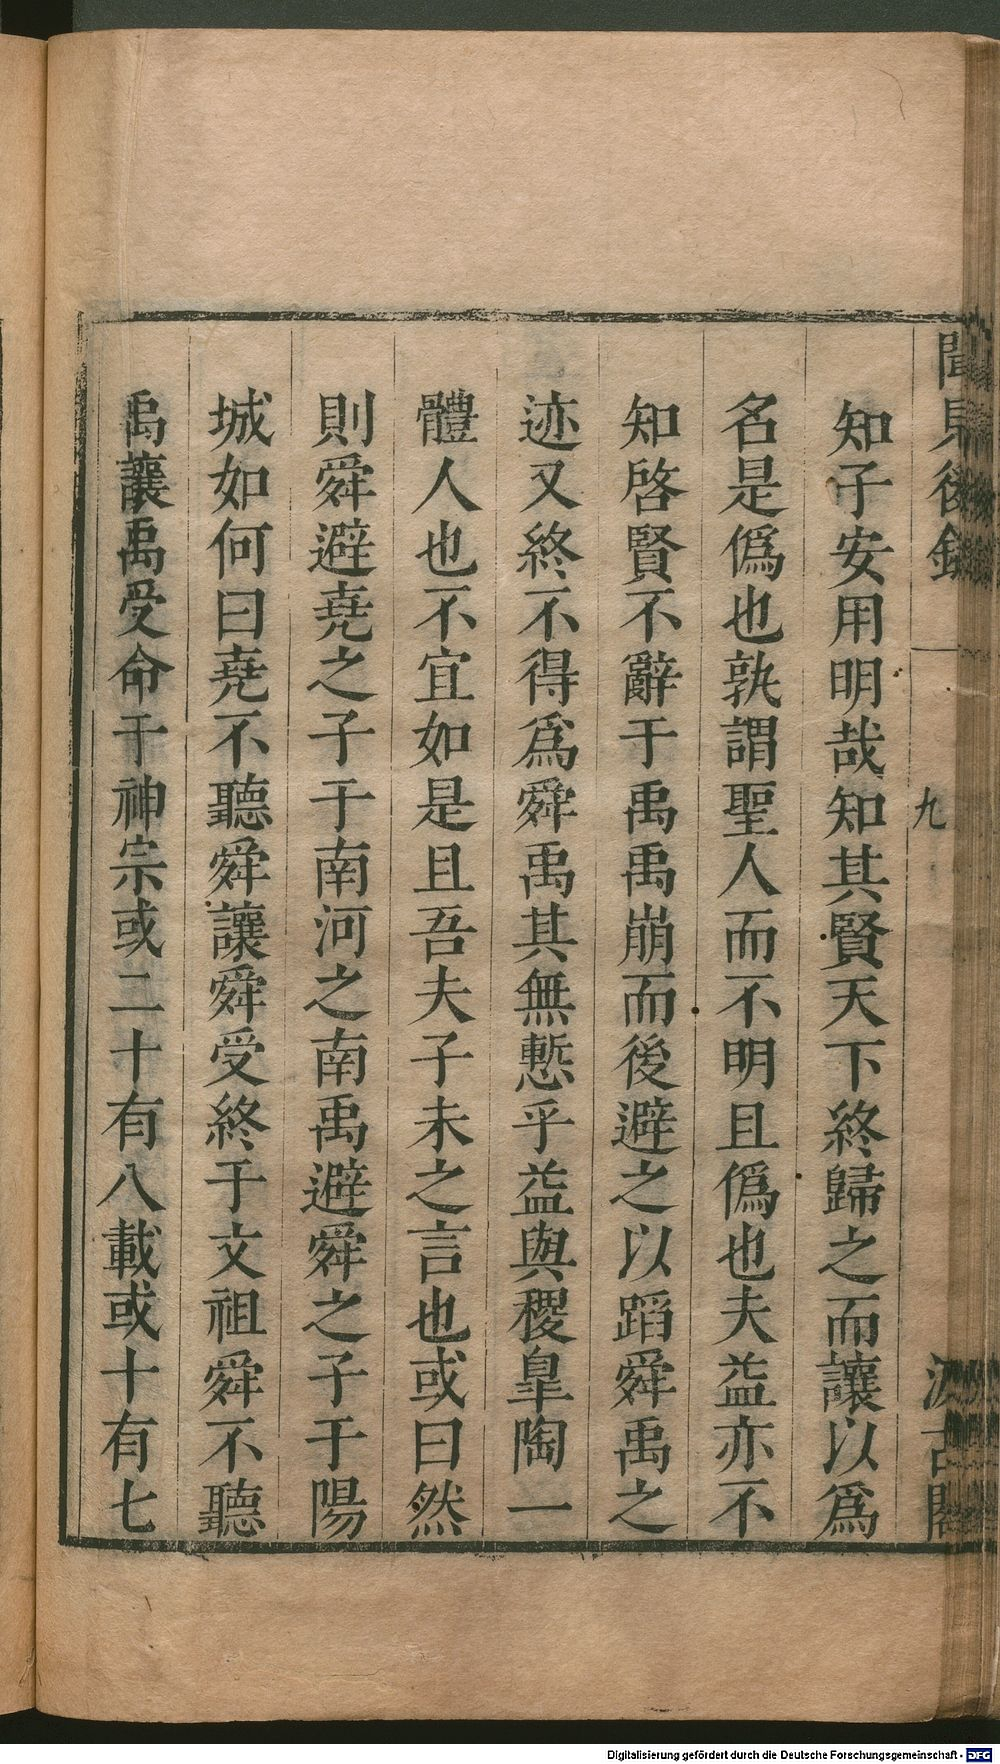 聞見後錄
九
汲古閣
知子安用明哉知其賢天下終歸之而讓以爲
名是僞也孰謂聖人而不明且僞也夫益亦不
知啓賢不辭于禹禹崩而後避之以蹈舜禹之
迹又終不得爲舜禹其無慙乎益與稷皐陶一
體人也不宜如是且吾夫子未之言也或曰然
則舜避堯之子于南河之南禹避舜之子于陽
城如何曰堯不聽舜讓舜受終于文祖舜不聽
禹讓禹受命于神宗或二十有八載或十有七
Digitalisierung gefördert durch die Deutsche Forschungsgemeinschaft - DFG